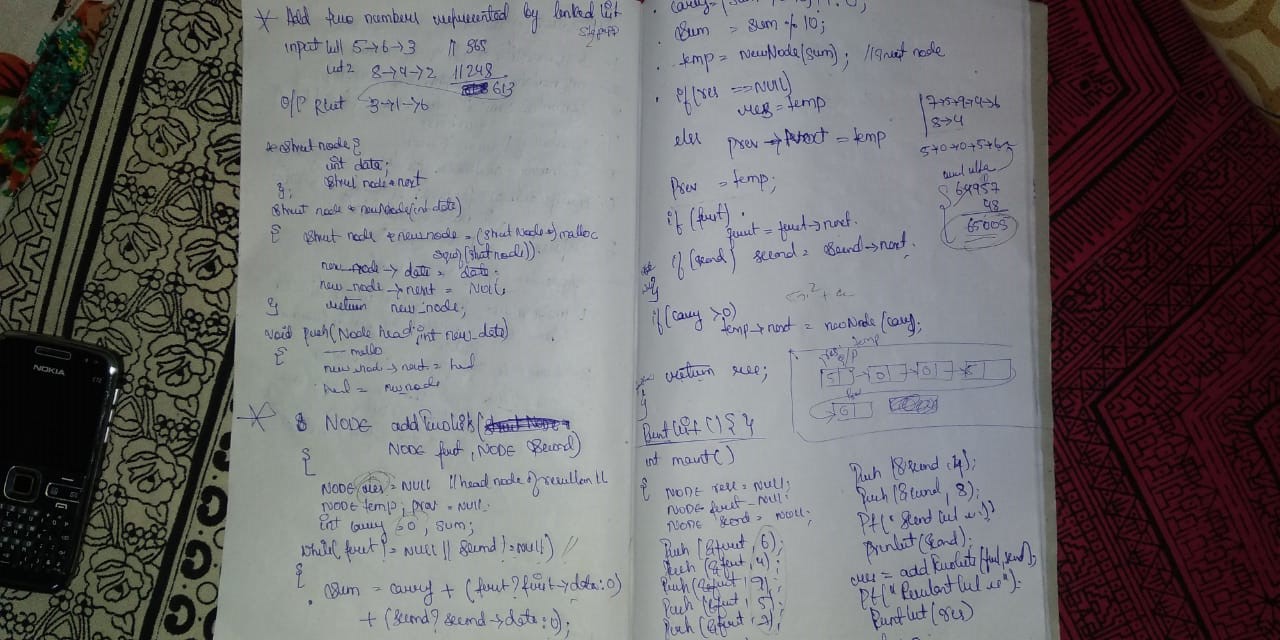 * Add two numbers represented by linked list
input list1 5→6→3 // 365
list2 8→4→2 // 248
613
O/P Result 3→1→6
struct node {
int data;
struct node * next
};
struct node * newNode(int data)
{ struct node * new_node = (struct node *) malloc
sizeof(struct node));
new_node → data = data;
new_node → next = NULL
return new_node;
}
void push(Node head, int new_data)
{
— mallo
new_nod → next = hed
hed = newnode
* NODE addTwoLists(
NODE first, NODE second)
{
NODE res = NULL // head node of resultant ll
NODE temp, prev = NULL.
int carry = 0, sum;
while(first != NULL || second != NULL) //
{
. Sum = carry + (first? first→data:0)
+ (second? second→data:0);
. Sum = sum % 10;
. temp = newNode(sum); // Creat node
. if(res == NULL)
res = temp
else prev → next = temp
Prev = temp;
if (first)
first = first→next.
if (second) second = second→next.
}
if(carry >0)
temp→next = newNode(carry);
return res;
}
7→5→9→4→6
8→4
5→0→0→5→6
64957
48
65005
res temp
O/P
5 → 0 → 0 → 5
6
PrintList() { }
int main()
{ NODE res = NULL;
NODE first = NULL;
NODE second = NULL;
Push (&first, 6);
Push (&first, 4);
Push (&first, 9);
Push (&first, 5);
Push (&first, 7);
Push (&second, 4);
Push (&second, 8);
Pf("Second list is")
Printlist(second);
res = addTwoLists(first, second);
Pf("Resultant list is");
Printlist(res)
NOKIA
E72